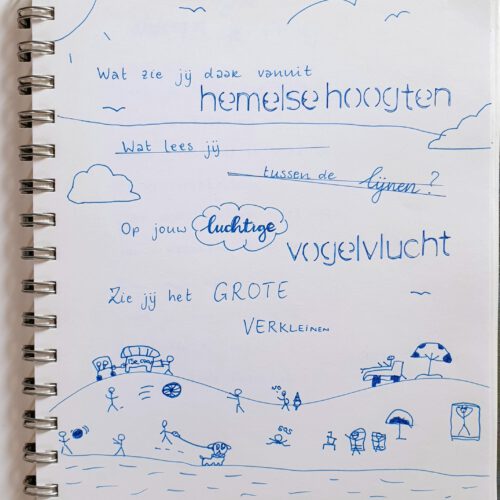 Wat zie jij daar vanuit
hemelse hoogten
Wat lees jij
tussen de lijnen?
Op jouw luchtige
vogelvlucht
Zie jij het GROTE
VERKLEINEN
SOS